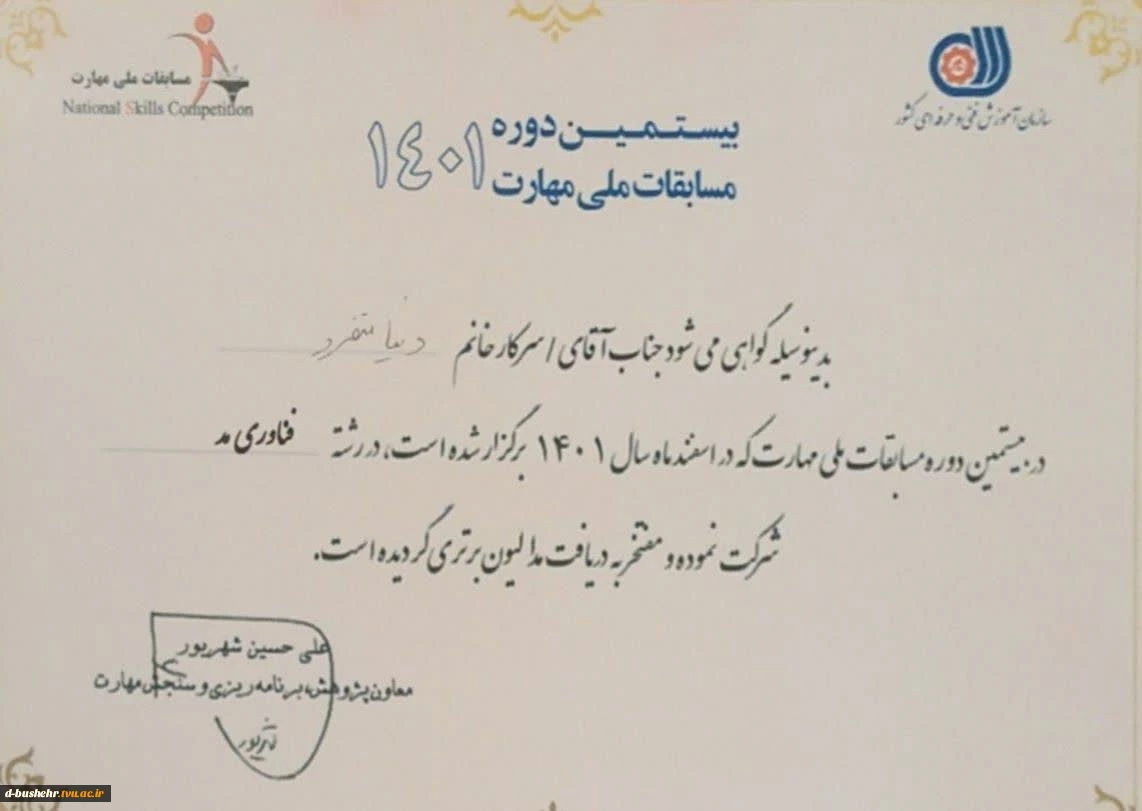 مسابقات ملی مهارت
National Skills Competition
سازمان آموزش فنی و حرفه ای کشور
بیستمین دوره
مسابقات ملی مهارت
۱۴۰۱
بدینوسیله گواهی می شود جناب آقای / سرکار خانم دنیا
در بیستمین دوره مسابقات ملی مهارت که در اسفند ماه سال ۱۴۰۱ برگزار شده است، در رشته فناوری مد
شرکت نموده و مفتخر به دریافت مدالیون برتری گردیده است.
علی حسین شهریور
معاون پژوهش، برنامه ریزی و سنجش مهارت
d-bushehr.tvu.ac.ir